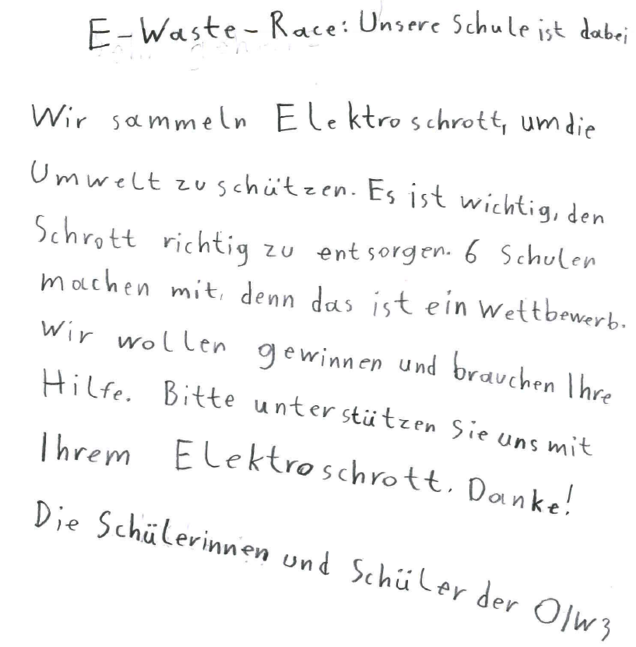 E-Waste-Race: Unsere Schule ist dabei
Wir sammeln Elektroschrott, um die
Umwelt zu schützen. Es ist wichtig, den
Schrott richtig zu entsorgen. 6 Schulen
machen mit, denn das ist ein Wettbewerb.
Wir wollen gewinnen und brauchen Ihre
Hilfe. Bitte unterstützen Sie uns mit
Ihrem Elektroschrott. Danke!
Die Schülerinnen und Schüler der O/W3